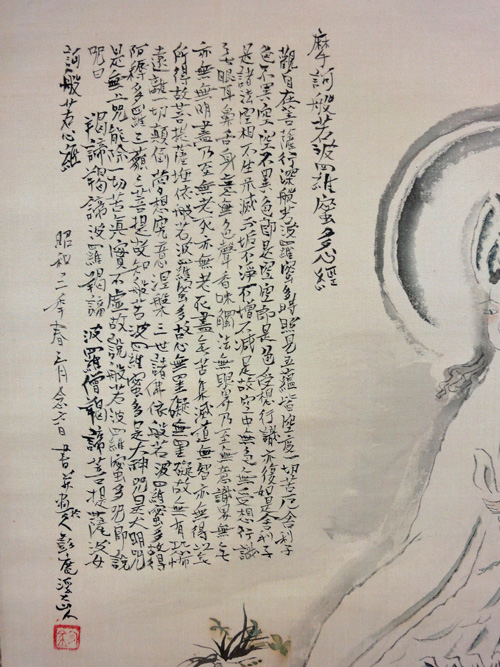 摩訶般若波羅蜜多心經
觀自在菩薩行深般若波羅蜜多時照見五蘊皆空度一切苦厄舍利子
色不異空空不異色色即是空空即是色受想行識亦復如是舍利子
是諸法空相不生不滅不垢不淨不增不減是故空中無色無受想行識
無眼耳鼻舌身意無色聲香味觸法無眼界乃至無意識界無無
亦無無明盡乃至無老死亦無老死盡無苦集滅道無智亦無得以無
所得故菩提薩埵依般若波羅蜜多故心無罣礙無罣礙故無有恐怖
遠離一切顛倒夢想究竟涅槃三世諸佛依般若波羅蜜多故得
阿耨多羅三藐三菩提故知般若波羅蜜多是大神呪是大明呪
是無上呪能除一切苦真實不虛故說般若波羅蜜多呪即說
呪曰 羯諦羯諦波羅羯諦 波羅僧羯諦菩提薩婆
訶般若心經
昭和二年春三月念六日